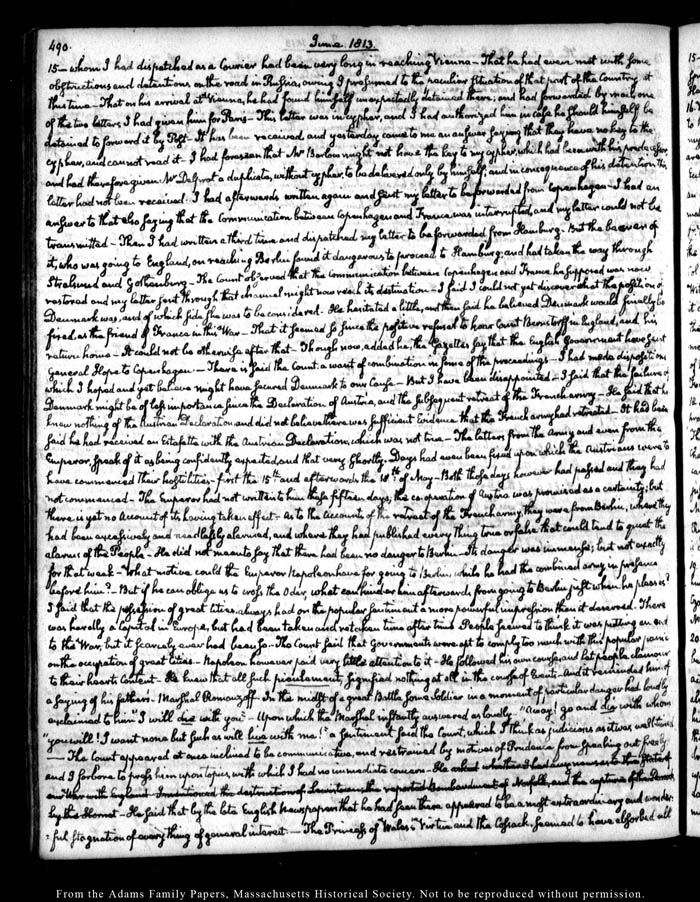 490.
June. 1813.
15— whom I had dispatched as a Courier had been very long in reaching Vienna— That he had even met with some
obstructions and detentions on the road in Russia, owing I presumed to the peculiar situation of that part of the Country at
this time. That on his arrival at Vienna, he had found himself unexpectedly detained there; and had forwarded by mail one
of the two letters, I had given him for Paris— This letter was in cypher, and I had authorized him in case he should himself be
detained to forward it by Post— It has been received and yesterday came to me an answer saying that they have no key to the
cypher, and cannot read it— I had foreseen that Mr Barlow might not have the key to my cypher, which had been with his predecessor,
and had therefore given Mr Delprat a duplicate, without cypher, to be delivered only by himself, and in consequence of his detention this
letter had not been received. I had afterwards written again and sent my letter to be forwarded from Copenhagen— I had an
answer to that also saying that the Communication between Copenhagen and France was interrupted, and my letter could not be
transmitted— Then I had written a third time and dispatched my letter to be forwarded from Hamburg. But the bearer of
it, who was going to England, on reaching Berlin found it dangerous to proceed to Hamburg; and had taken the way through
Stralsund and Gothenburg— The Count observed that the communication between Copenhagen and France he supposed was now
restored and my letter sent through that channel might now reach its destination— I said I could not yet discover what the position of
Denmark was, and of which side she was to be considered— He hesitated a little, and then said he believed Denmark would finally be
fixed, as the friend of France in this War— That it seemed so since the positive refusal to hear Count Bernstorff in England, and his
return home— It could not be otherwise after that— Though now, added he, the Gazettes say that the English Government have sent
General Hope to Copenhagen— There is said the Count a want of combination in some of the proceedings— I had made dispositions
which I hoped and yet believe might have secured Denmark to our Cause— But I have been disappointed— I said that the failure of
Denmark might be of less importance since the Declaration of Austria, and the subsequent retreat of the French army— He said that he
knew nothing of the Austrian Declaration and did not believe there was sufficient Evidence that the French army had retreated— It had been
said he had received an Estafette with the Austrian Declaration, which was not true— The letters from the Army and even from the
Emperor, speak of it as being confidently expected and that very shortly. Days had even been fixed upon which the Austrians were to
have commenced their hostilities— first the 15th and afterwards the 18th of May— Both those days however had passed and they had
not commenced— The Emperor had not written to him these fifteen days, the co-operation of Austria was promised as a certainty; but
there is yet no Account of its having taken effect— As to the Accounts of the retreat of the French army, they were from Berlin, where they
had been excessively and needlessly alarmed, and where they had published every thing true or false that could tend to quiet the
alarms of the People— He did not mean to say that there had been no danger to Berlin— Its danger was immense; but not exactly
for that week— What motive could the Emperor Napoleon have for going to Berlin while he had the combined army in presence
before him?— But if he can oblige us to cross the Oder, what can hinder him afterwards from going to Berlin just when he pleases?
I said that the possession of great Cities, always had on the popular sentiment a more powerful impression than it deserved. There
was hardly a Capital in Europe, but had been taken and retaken time after time. People seemed to think it was putting an end
to the War, but it scarcely ever had been so— The Count said that Governments were apt to comply too much with this popular panic
on the occupation of great Cities— Napoleon however paid very little attention to it— He followed his own course, and let people clamour
to their hearts Content— He knew that all such signified nothing at all in the course of Events— And it reminded him of
a saying of his father's. Marshal Romanzoff— In the midst of a great Battle some Soldier in a moment of particular danger had loudly
exclaimed to him "I will die with you"— Upon which the Marshal instantly answered as loudly, "Away! go and die with whom
"you will! I want none but such as will live with me!" a Sentiment said the Count, which I think as judicious as it was well timed
— The Count appeared at once inclined to be communicative, and restrained by motives of Prudence from speaking out freely;
and I forbore to press him upon topics, with which I had no immediate concern— He asked whether I had any news as to the State of
our War with England— I mentioned the destruction of the reported Bombardment of Norfolk, and the capture of the
by the Hornet— He said that by the late English Newspapers that he had seen there appeared to be a most extraordinary and wonder-
ful stagnation of every thing of general interest.— The Princess of Wales's Virtue and the Cossack, seemed to have absorbed all
From the Adams Family Papers, Massachusetts Historical Society. Not to be reproduced without permission.